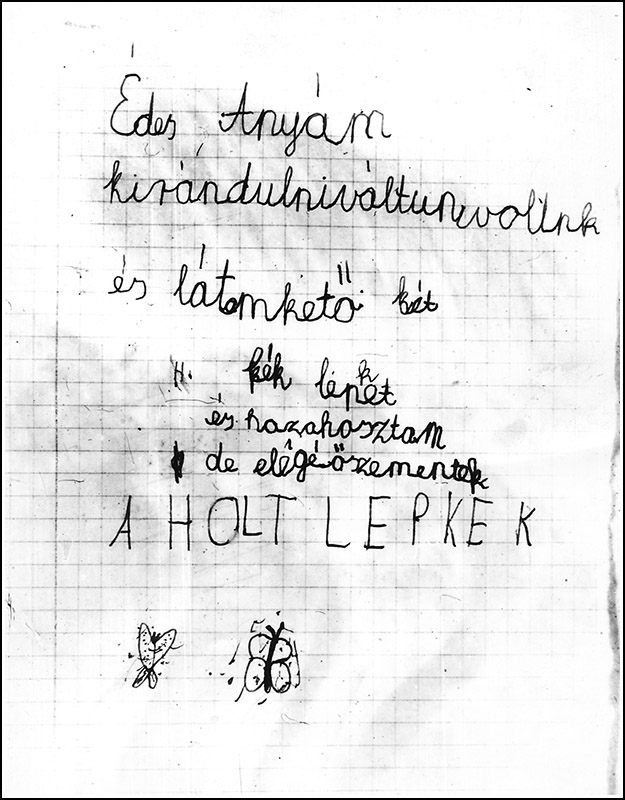 Édes Anyám
kirándulniváltunkvoltnk
és látomkető két
H. kék lepket
és hazahosztam
de elégé öszementek
A HOLT LEPKEK